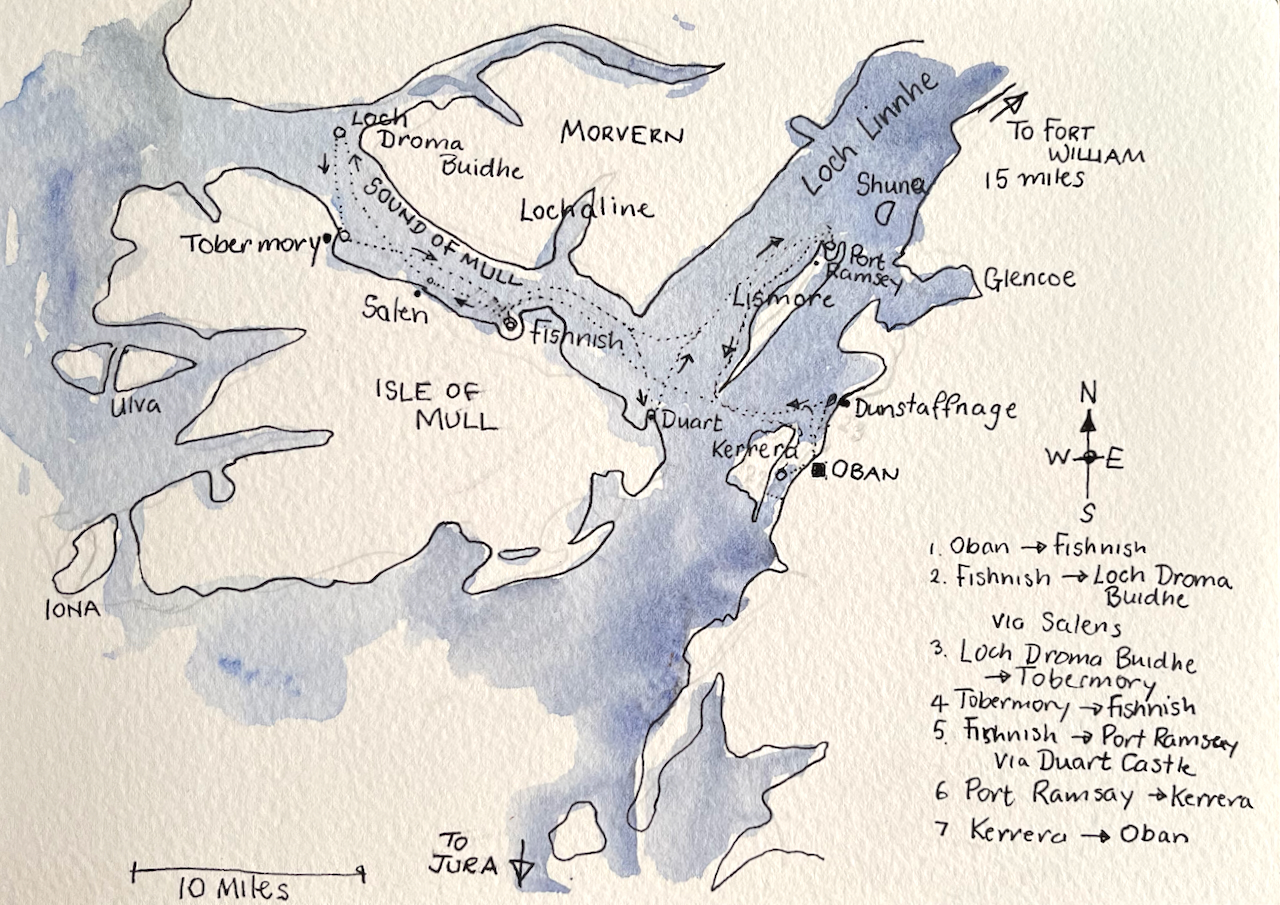 Loch
Droma
Buidhe
MORVERN
Loch Linnhe
TO FORT
WILLIAM
15 miles
Shuna
SOUND OF MULL
Lochaline
Tobermory
Port
Ramsey
Glencoe
Salen
Lismore
Fishnish
Ulva
ISLE OF
MULL
Duart
Dunstaffnage
Kerrera
OBAN
N
W E
S
IONA
1. Oban → Fishnish
2. Fishnish → Loch Droma
Buidhe
via Salens
3. Loch Droma Buidhe
→ Tobermory
4 Tobermory → Fishnish
5. Fishnish → Port Ramsay
via Duart Castle
6 Port Ramsay → Kerrera
7 Kerrera → Oban
TO
JURA
10 MILES